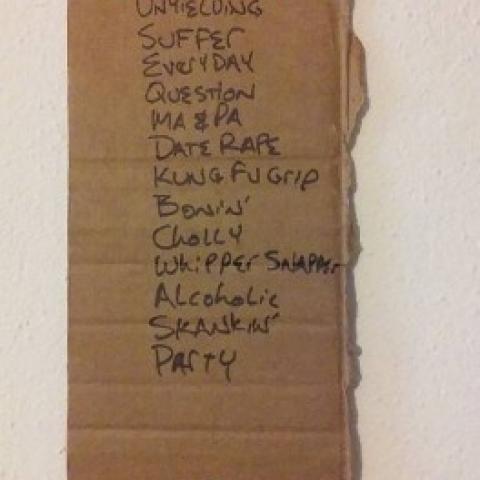 UNYIELDING
SUFFER
EVErYDAY
QUESTION
MA & PA
DATE RAPE
KUNG FU Grip
BONIN'
CHOLLY
WHiPPEr SNAPPEr
AlCoHoLic
SKANKIN'
PArTY